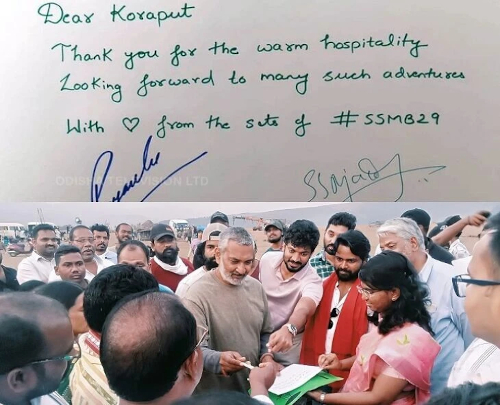 Dear Koraput
Thank you for the warm hospitality
Looking forward to many such adventures
With ♡ from the sets of #SSMB29
ODISHA TELEVISION LTD
SSRajamouli